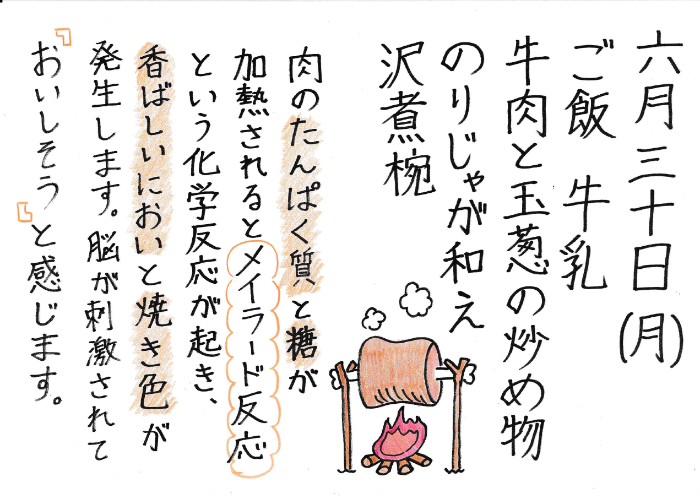 六月三十日(月)
ご飯　牛乳
牛肉と玉葱の炒め物
のりじゃが和え
沢煮椀
肉のたんぱく質と糖が
加熱されるとメイラード反応
という化学反応が起き、
香ばしいにおいと焼き色が
発生します。脳が刺激されて
『おいしそう』と感じます。